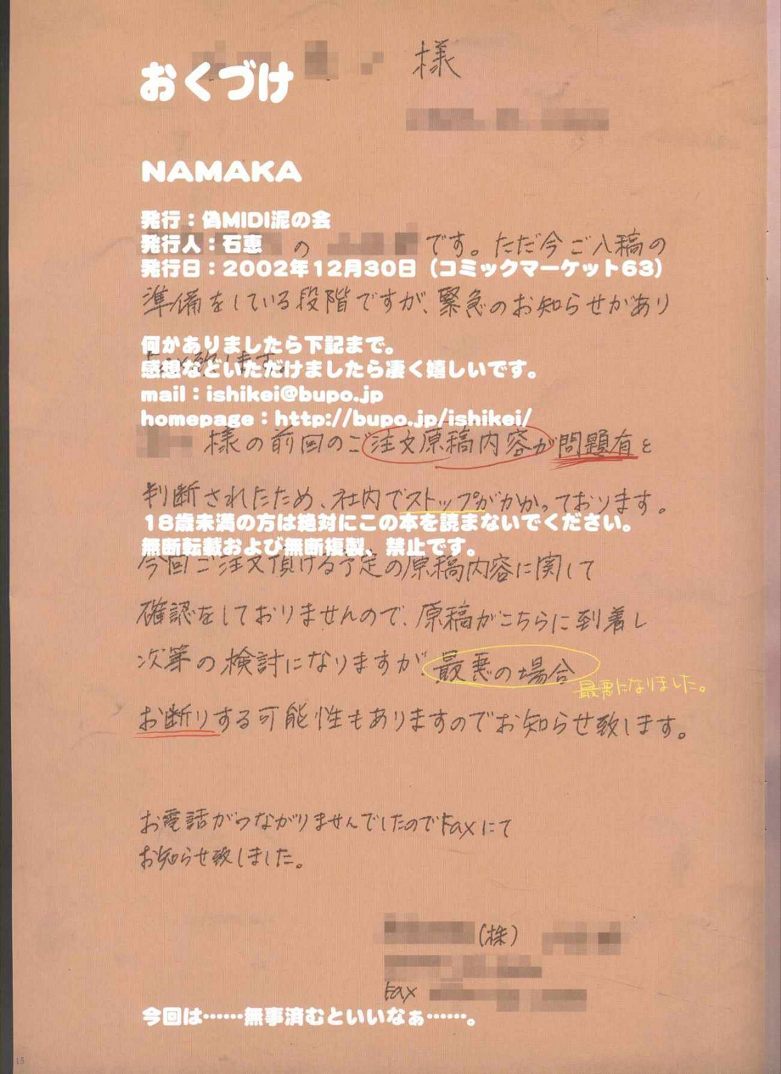 様
おくづけ
NAMAKA
発行：偽MIDI泥の会
発行人：石恵
の です。ただ今ご入稿の
発行日：2002年12月30日（コミックマーケット63）
準備をしている段階ですが、緊急のお知らせがあり
何かありましたら下記まで。
致します。
感想などいただけましたら凄く嬉しいです。
mail：ishikei@bupo.jp
homepage：http://bupo.jp/ishikei/
様の前回のご注文原稿内容が問題有と
判断されたため、社内でストップがかかっております。
18歳未満の方は絶対にこの本を読まないでください。
無断転載および無断複製、禁止です。
今回ご注文頂ける予定の原稿内容に関して
確認をしておりませんので、原稿がこちらに到着し
次第の検討になりますが最悪の場合
最悪になりました。
お断りする可能性もありますのでお知らせ致します。
お電話がつながりませんでしたのでFaxにて
お知らせ致しました。
(株)
Fax
今回は……無事済むといいなぁ……。
15